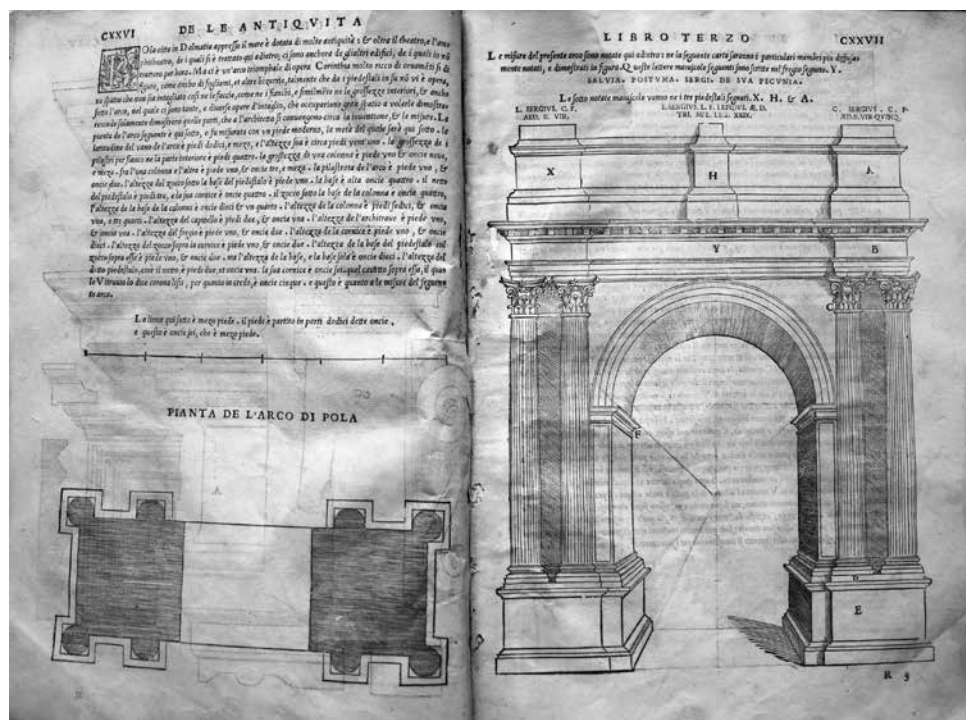 CXXVI
DE LE ANTIQVITA
POla citta in Dalmatia appresso il mare è dotata di molte antiquità: & oltra il theatro, e l'am
phitheatro, de i quali si è trattato qui adietro, ci sono anchora de gli altri edifici, de i quali io nō
narrero per hora. Ma ci è un'arco triomphale di opera Corinthia molto ricco di ornamēti si di
figure, come ancho di fogliami, et altre bizarrie, talmente che da i piedestali in su nō vi è opera,
ne spatio che non sia intagliato così ne la faccia, come ne i fianchi, e similmēte ne le grossezze interiori, & ancho
sotto l'arco, nel quale ci sono tante, e diverse opere d'intaglio, che occuperiano gran spatio a volerle dimostra-
re: onde solamente dimostraro quelle parti, che a l'architetto si conuengono circa la inuentione, & le misure. La
pianta de l'arco seguente è qui sotto, e fu misurata con un piede moderno, la metà del quale sarà qui sotto. la
latitudine del vano de l'arco è piedi dodici, e mezo, e l'altezza sua è circa piedi vent'uno. la grossezza de i
pilastri per fianco ne la parte interiore è piedi quattro. la grossezza di una colonna è piede uno & oncie noue,
e mezo. fra l'una colonna e l'altra è piede uno, & oncie tre, e meza. la pilastrata de l'arco è piede uno, &
oncie due. l'altezza del zocco sotto la base del piedestalo è piede uno. la base è alta oncie quattro. il netto
del piedestalo è piedi tre, e la sua cornice è oncie quattro. il zocco sotto la base de la colonna è oncie quattro,
l'altezza de la base de la colonna è oncie dieci & un quarto. l'altezza de la colonna è piedi sedici, & oncia
una, e tre quarti. l'altezza del capitello è piedi due, & oncia una. l'altezza de l'architraue è piede uno,
& oncia una. l'altezza del fregio è piede uno, & oncie due. l'altezza de la cornice è piede uno, & oncie
dieci. l'altezza del zocco sopra la cornice è piede uno, & oncie due. l'altezza de la base del piedestalo col
zocco sopra esse è piede uno, & oncie due. ma l'altezza de la base, e la base sola è oncie dieci. l'altezza del
ditto piedestalo, cioè il netto è piedi due, et oncia una. la sua cornice è oncie sei. quel cauetto sopra essa, il qua
le Vitruuio lo dice corona lisis, per quanto io credo, è oncie cinque. e questo è quanto a le misure del seguen
te arco.
La linea qui sotto è mezo piede. il piede è partito in parti dodici dette oncie,
e questo è oncie sei, che è mezo piede.
PIANTA DE L'ARCO DI POLA
LIBRO TERZO
CXXVII
Le misure del presente arco sono notate qui adietro: ne la seguente carta saranno i particulari membri piu diffusa
mente notati, e dimostrati in figure. Queste lettere maiuscole seguenti sono scritte nel fregio segnato. Y.
SALVIA. POSTVMA. SERGI. DE SVA PECVNIA.
Le sotto notate maiuscole vanno ne i tre piedestali segnati. X. H. & A.
L. SERGIVS. C. F.
AED. II. VIR.
L. SERGIVS. L. F. LEPIDVS. ÆD.
TRI. MIL. LEG. XXIX.
C. SERGIVS. C. F.
ÆD. II. VIR QVINQ.
X
H
A
Y
B
F
D
E
R 3